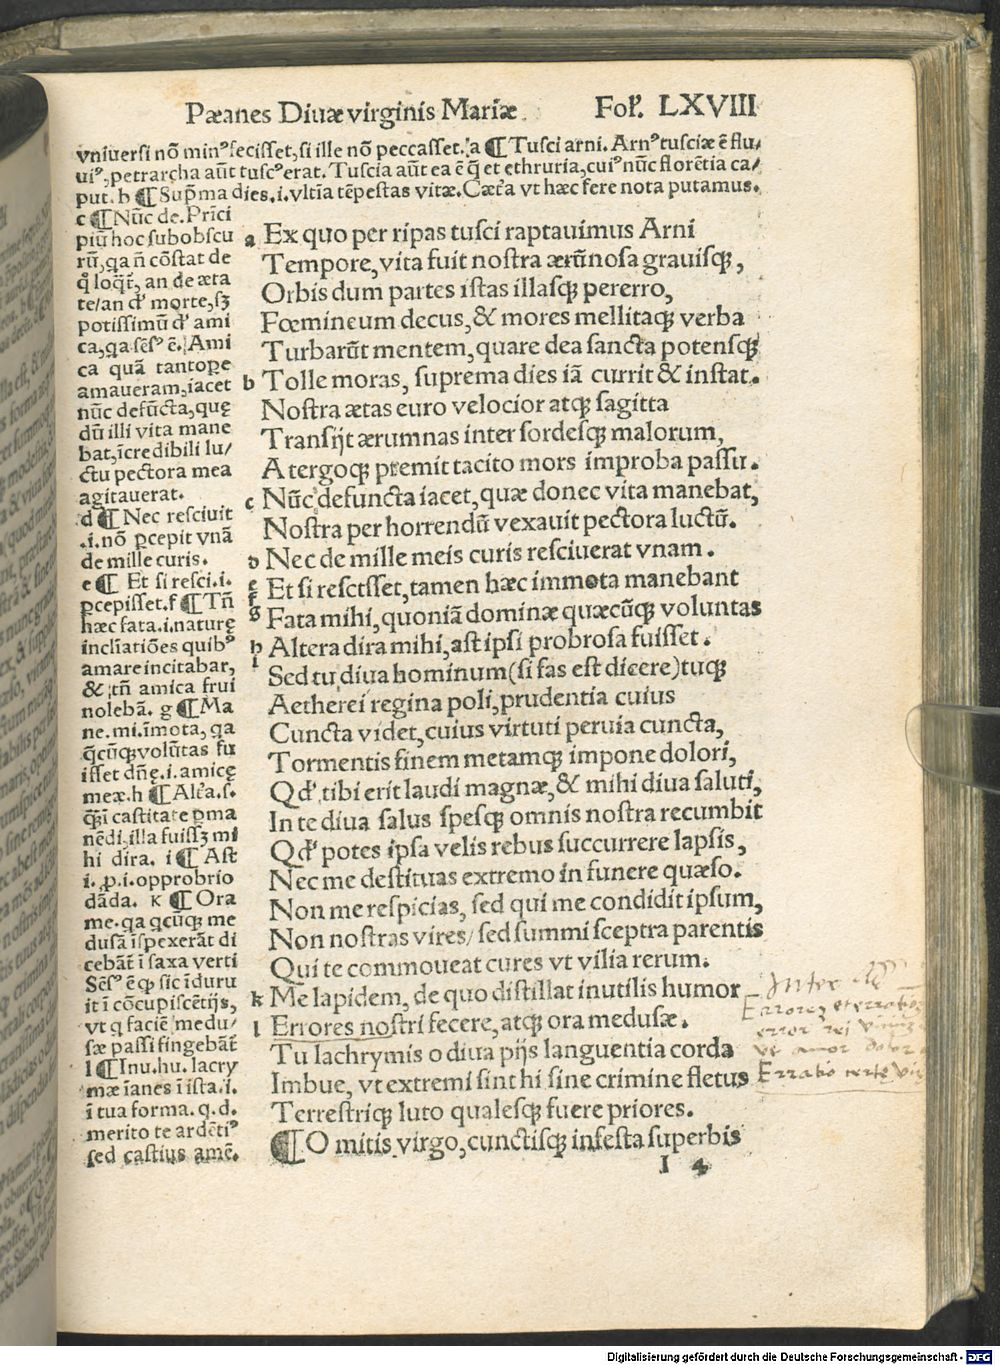 Pæanes Diuæ virginis Mariæ. Folꝰ. LXVIII
vniuersi nō minꝰ fecisset, si ille nō peccasset. a ¶ Tusci arni. Arnꝰ tusciæ ē flu/
uiꝰ, petrarcha aūt tuscꝰ erat. Tuscia aūt ea ē q̄ et ethruria, cuiꝰ nūc florētia ca/
put. b ¶ Sup̄ma dies. i. vltīa tēpestas vitæ. Cæt̄a vt hæc fere nota putamus.
c ¶ Nūc de. Prīci
piū hoc subobscu
rū, qa ñ cōstat de
q̊ loqt̄, an de æta
te/an ď morte, sꝫ
potissimū ď ami
ca, qa sēsꝰ ē. Ami
ca quā tantope
amaueram, iacet
nūc defūcta, quę
dū illi vita mane
bat, īcredibili lu/
ctu pectora mea
agitauerat.
d ¶ Nec resciuit
.i. nō ꝑcepit vnā
de mille curis.
e ¶ Et si resci. i.
ꝑcepisset. f ¶ Tñ
hæc fata. i. naturę
incliatiōes quibꝰ
amare incitabar,
& tñ amica frui
nolebā. g ¶ Ma
ne. mi. īmota, qa
q̄cūqꝫ volūtas fu
isset dñę. i. amicę
meæ. h ¶ Alt̄a. s.
q̄si castitate ꝑma
nēdi, illa fuissꝫ mi
hi dira. i ¶ Ast
i. ꝓ. i. opprobrio
dāda. K ¶ Ora
me. qa qcūqꝫ me
dusā īspexerāt di
cebāt ī saxa verti
Sēsꝰ ē qꝫ sic īduru
it ī cōcupiscētijs,
vt q faciē medu/
sæ passi fingebāt
l ¶ Inu. hu. lacry
mæ īanes ī ista. i.
ī tua forma. q. d.
merito te ardētiꝰ
sed castius amē.
a Ex quo per ripas tusci raptauimus Arni
Tempore, vita fuit nostra ærūnosa grauisqꝫ,
Orbis dum partes istas illasqꝫ pererro,
Fœmineum decus, & mores mellitaqꝫ verba
Turbarūt mentem, quare dea sancta potensqꝫ
b Tolle moras, suprema dies iā currit & instat.
Nostra ætas euro velocior atqꝫ sagitta
Transijt ærumnas inter sordesqꝫ malorum,
A tergoqꝫ premit tacito mors improba passu.
c Nūc defuncta iacet, quæ donec vita manebat,
Nostra per horrendū vexauit pectora luctū.
d Nec de mille meis curis resciuerat vnam.
e f Et si resctsset, tamen hæc immota manebant
g Fata mihi, quoniā dominæ quæcūqꝫ voluntas
h Altera dira mihi, ast ipsi probrosa fuisset.
i Sed tu diua hominum (si fas est dicere) tuqꝫ
Aetherei regina poli, prudentia cuius
Cuncta videt, cuius virtuti peruia cuncta,
Tormentis finem metamqꝫ impone dolori,
Qď tibi erit laudi magnæ, & mihi diua saluti,
In te diua salus spesqꝫ omnis nostra recumbit
Qď potes ipsa velis rebus succurrere lapsis,
Nec me destituas extremo in funere quæso.
Non me respicias, sed qui me condidit ipsum,
Non nostras vires/ sed summi sceptra parentis
Qui te commoueat cures vt vilia rerum.
k Me lapidem, de quo distillat inutilis humor
l Errores nostri fecere, atqꝫ ora medusæ.
Tu lachrymis o diua pijs languentia corda
Imbue, vt extremi sint hi sine crimine fletus
Terrestriqꝫ luto qualesqꝫ fuere priores.
¶ O mitis virgo, cunctisqꝫ infesta superbis
I 4
Inter
Errores et erratio
error rei
vt amor dolor
Erratio
Digitalisierung gefördert durch die Deutsche Forschungsgemeinschaft - DFG